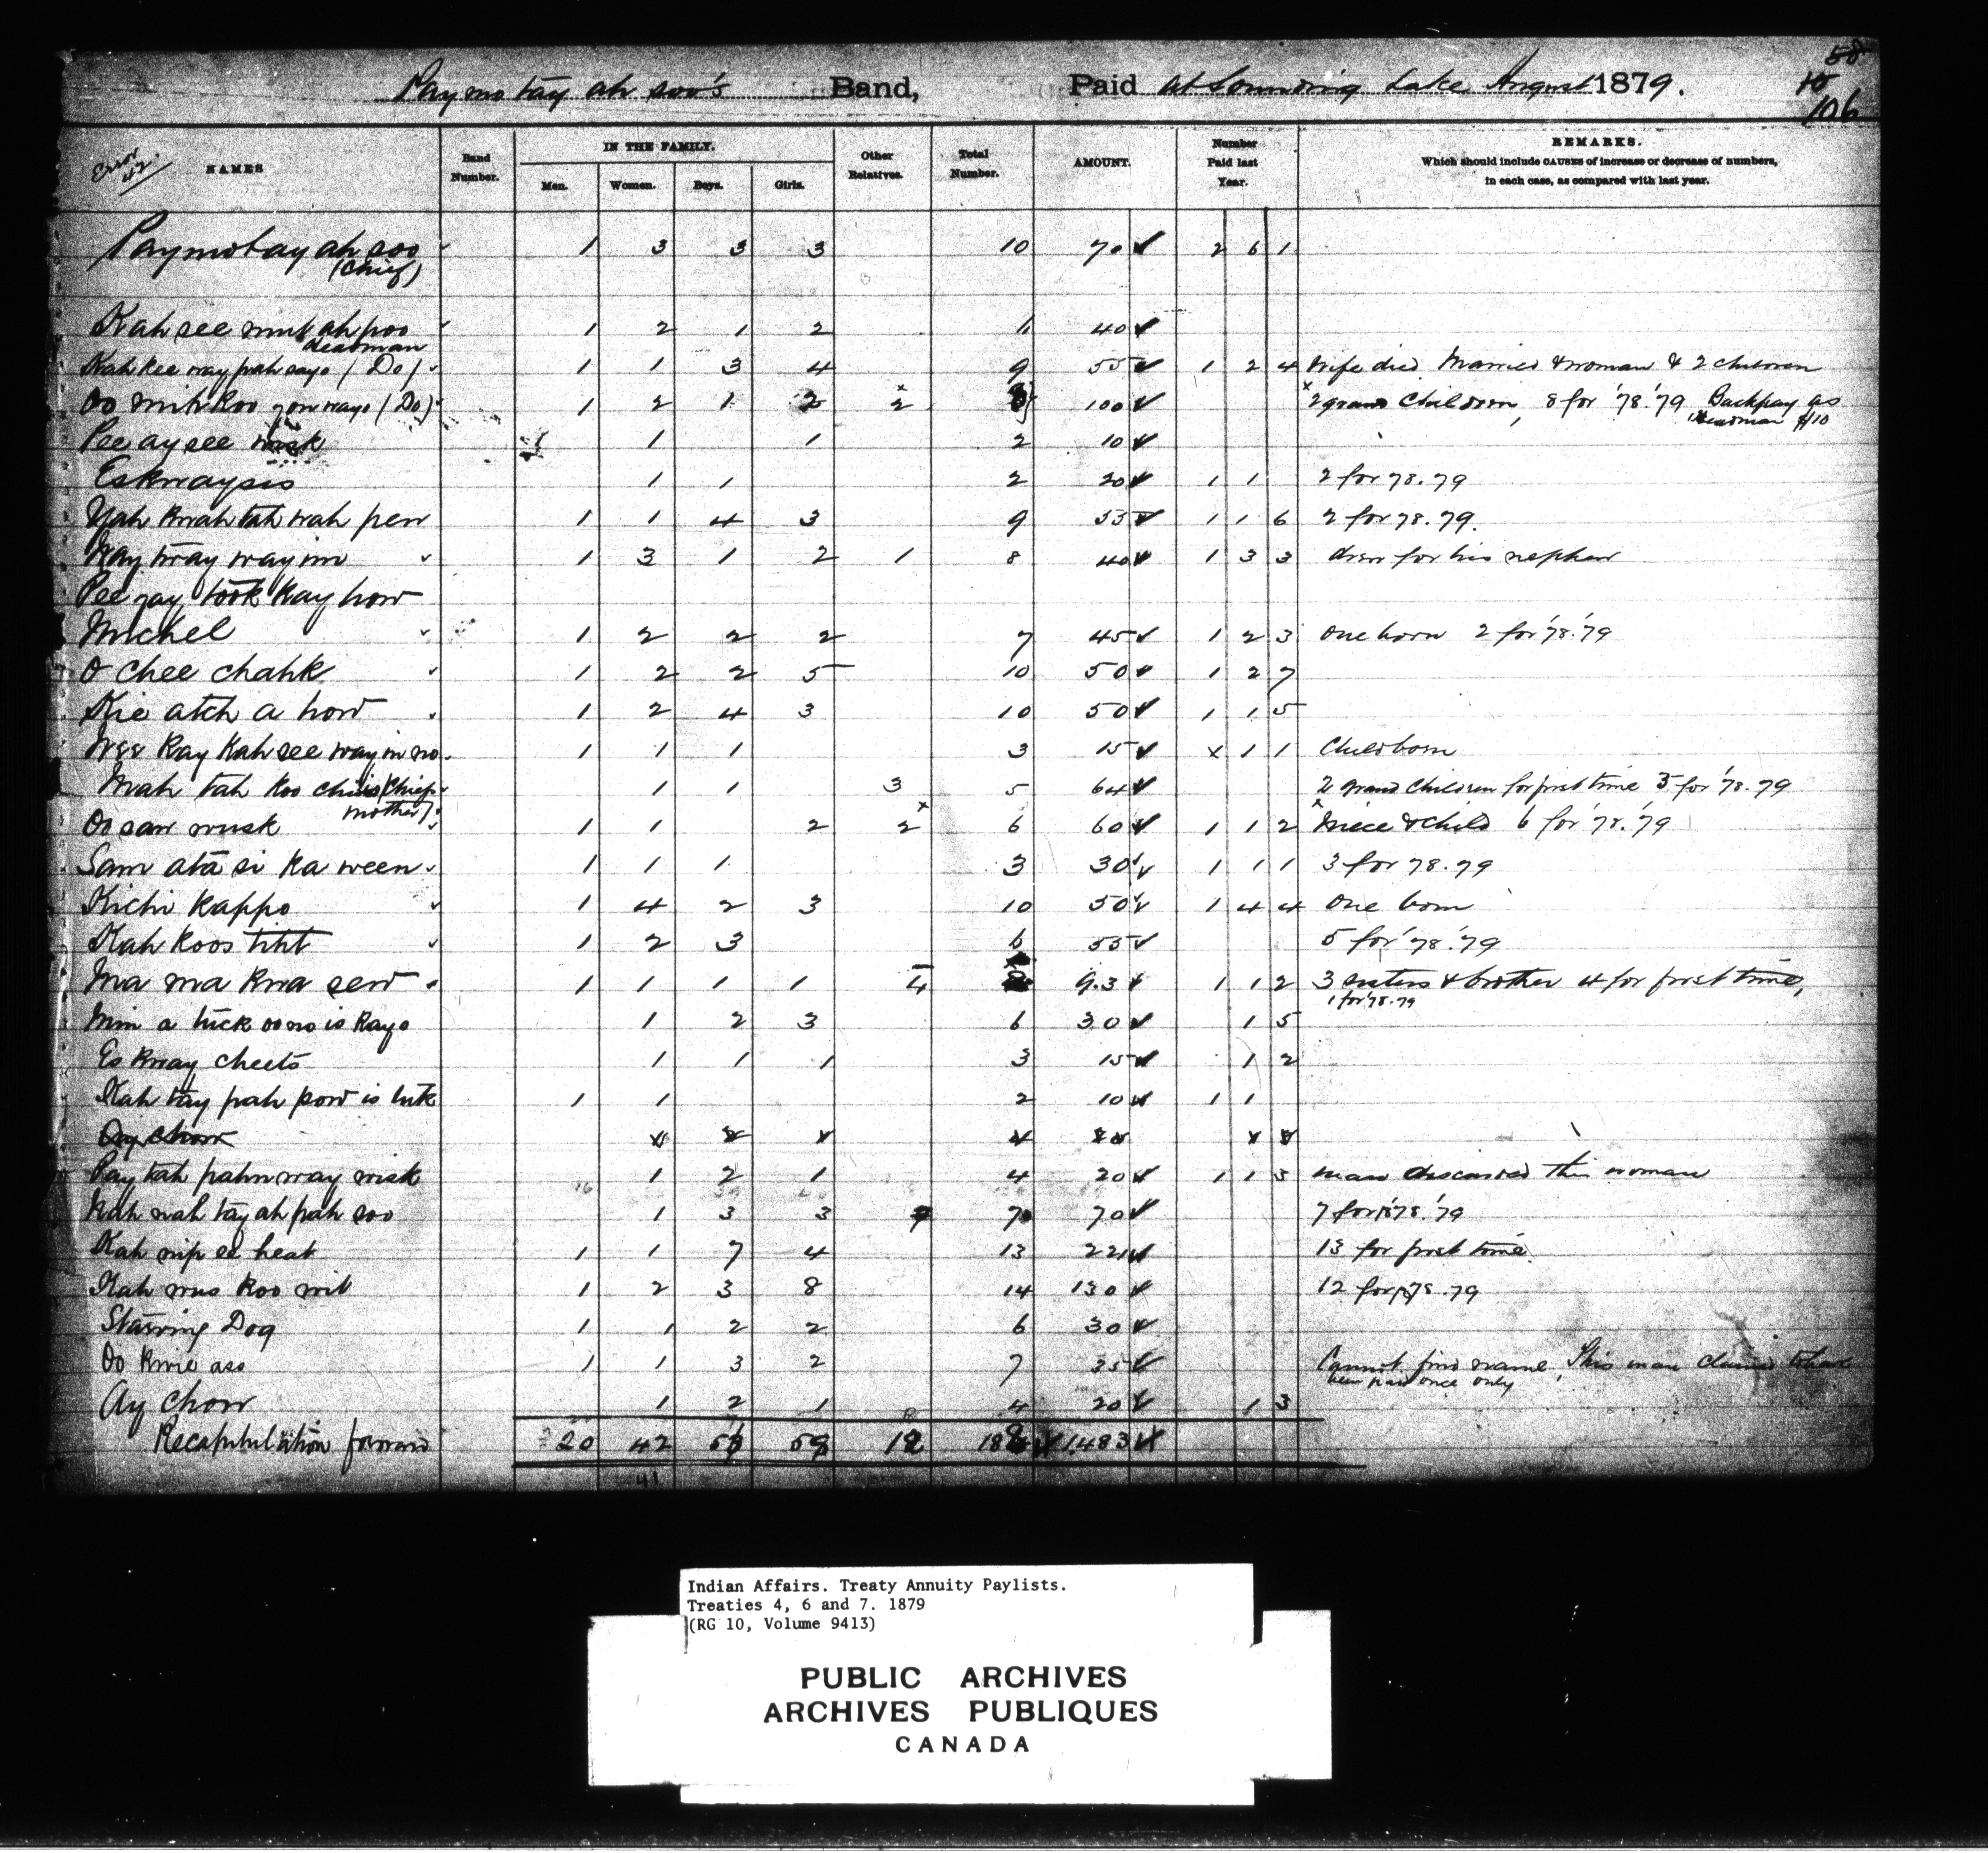 58
10
106
Paymotayahsoo's Band, Paid at Sounding Lake August 1879.
Error
NAMES
Band Number.
IN THE FAMILY.
Men. Women. Boys. Girls.
Other Relatives.
Total Number.
AMOUNT.
Number Paid last Year.
REMARKS.
Which should include CAUSES of increase or decrease of numbers,
in each case, as compared with last year.
Paymotay ah soo 1 3 3 3 10 70 2 6 1
(Chief)
Kah see mut ah poo 1 2 1 2 6 40
Headman
Kah kee way pah sayo (Do) 1 1 3 4 9 55 1 2 4 Wife died Married woman & 2 children
Oo mih koo yowwayo (Do) 1 2 1 2 x2 8 100 x2 grand Children, 8 for '78.'79 Backpay as
Headman $10
Pee ay see wisk 1 1 2 10
Eskwaysis 1 1 2 20 1 1 2 for 78.79
Yah kwah tah wah pew 1 1 4 3 9 55 1 1 6 2 for 78.79.
Way tway way im 1 3 1 2 1 8 40 1 3 3 drew for his nephew
Pee zay took kay how
Michel 1 2 2 2 7 45 1 2 3 one born 2 for '78.'79
O chee chahk 1 2 2 5 10 50 1 2 7
Kie atch a how 1 2 4 3 10 50 1 1 5
Wee kay kah see way in no 1 1 1 3 15 x 1 1 Child born
Mah tah koo chiis (Chief's 1 1 3 5 64 2 grand children for first time 3 for '78.79
mother)
Oo saw wusk 1 1 2 x2 6 60 1 1 2 x Niece & child 6 for '78.'79
Sam atā si ka ween 1 1 1 3 30 1 1 1 3 for 78.79
Kichi kappo 1 4 2 3 10 50 1 4 4 One born
Kah koos tiht 1 2 3 6 55 5 for '78.'79
Ma ma kwa sew 1 1 1 1 4 8 93 1 1 2 3 sisters & brother 4 for first time,
1 for '78.79
Mim a tuck oo no is kayo 1 2 3 6 30 1 5
Es kway cheets 1 1 1 3 15 1 2
Kah tay pah pow is tuk 1 1 2 10 1 1
Ay chow
Pay tah pahn way wisk 1 2 1 4 20 1 1 3 man discarded this woman
Nah nah tay ah pah soo 1 3 3 7 70 7 for '78.'79
Kah nip ee heat 1 1 7 4 13 221 13 for first time.
Kah mus koo wit 1 2 3 8 14 130 12 for '78.79
Starving Dog 1 1 2 2 6 30
Oo kwie ass 1 1 3 2 7 35 Cannot find name, This man claims to have
been paid once only
Ay chow 1 2 1 4 20 1 3
Recapitulation forward 20 42 12 1483
41
Indian Affairs. Treaty Annuity Paylists.
Treaties 4, 6 and 7. 1879
(RG 10, Volume 9413)
PUBLIC ARCHIVES
ARCHIVES PUBLIQUES
CANADA